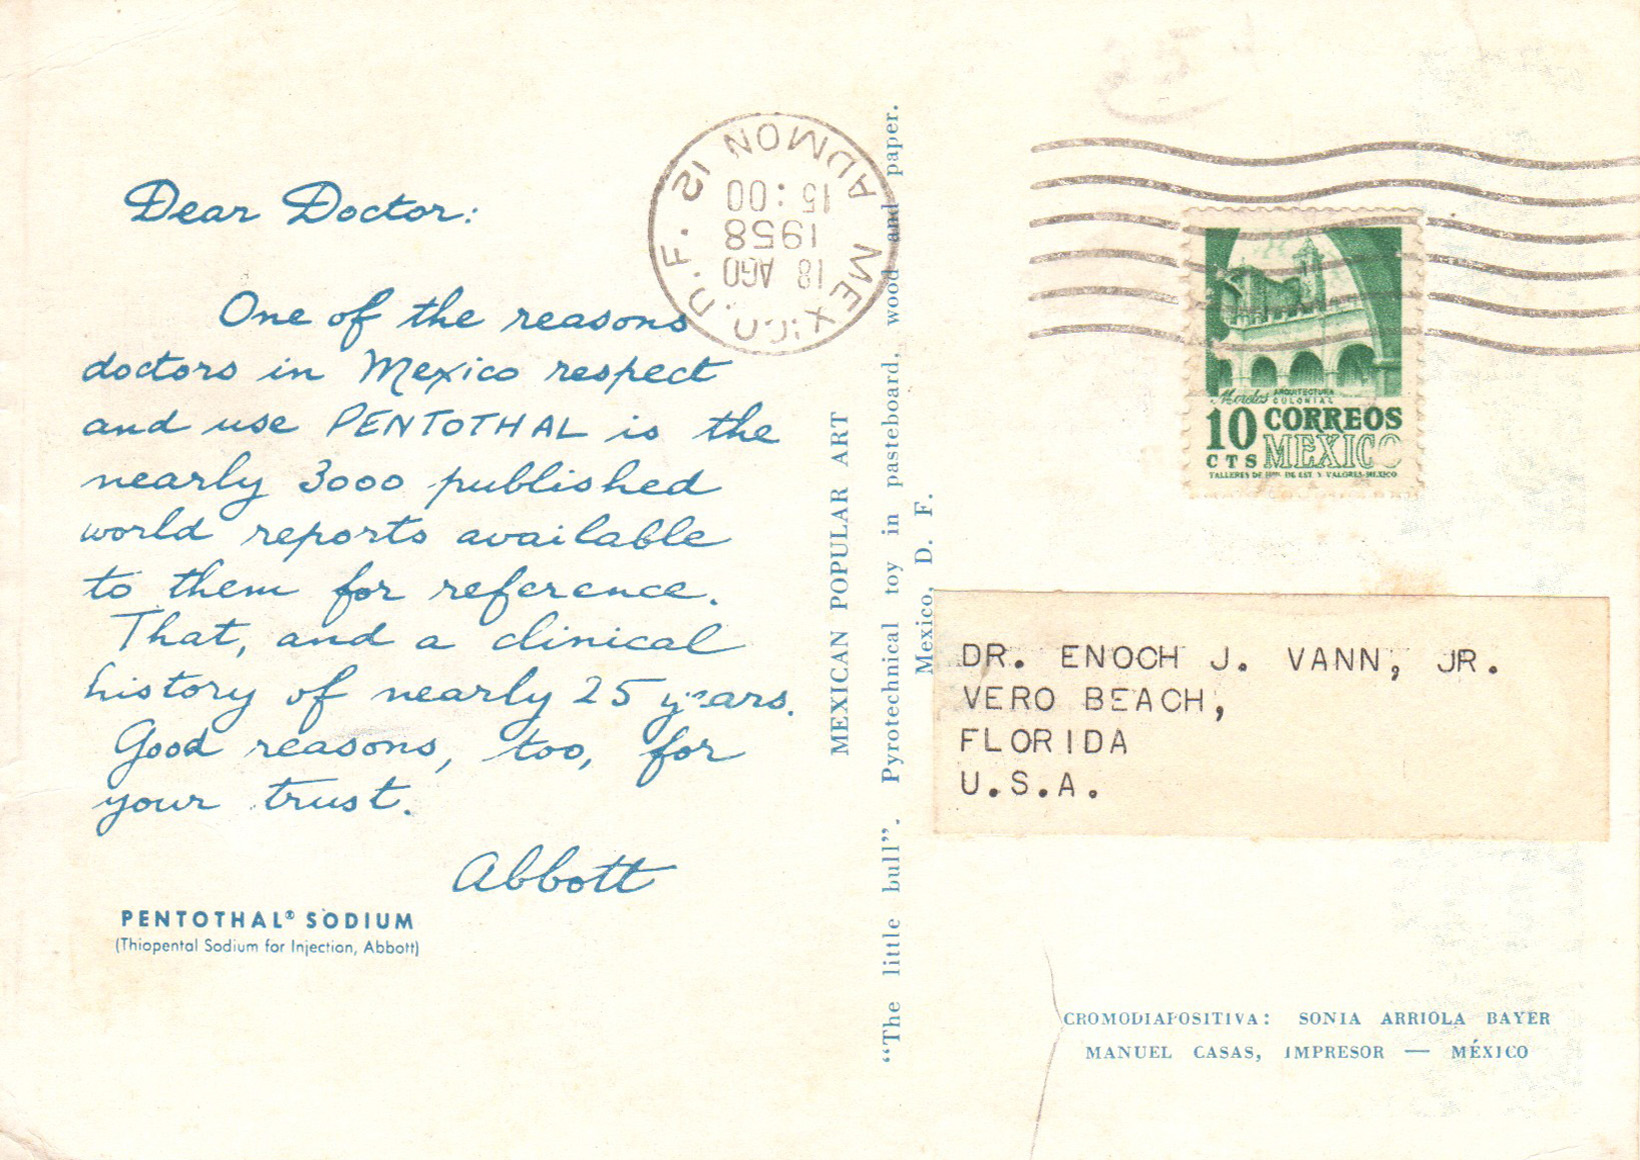 Dear Doctor:
One of the reasons
doctors in Mexico respect
and use PENTOTHAL is the
nearly 3000 published
world reports available
to them for reference.
That, and a clinical
history of nearly 25 years.
Good reasons, too, for
your trust.
Abbott
PENTOTHAL® SODIUM
(Thiopental Sodium for Injection, Abbott)
ADMON 15
MEXICO. D. F.
15:00
1958
18 AGO
MEXICAN POPULAR ART
"The little bull". Pyrotechnical toy in pasteboard, wood and paper.
Mexico, D. F.
Morelos ARQUITECTURA
COLONIAL
10 CORREOS
CTS MEXICO
TALLERES DE IMP. DE EST. Y VALORES-MEXICO
DR. ENOCH J. VANN, JR.
VERO BEACH,
FLORIDA
U.S.A.
CROMODIAPOSITIVA: SONIA ARRIOLA BAYER
MANUEL CASAS, IMPRESOR — MÉXICO